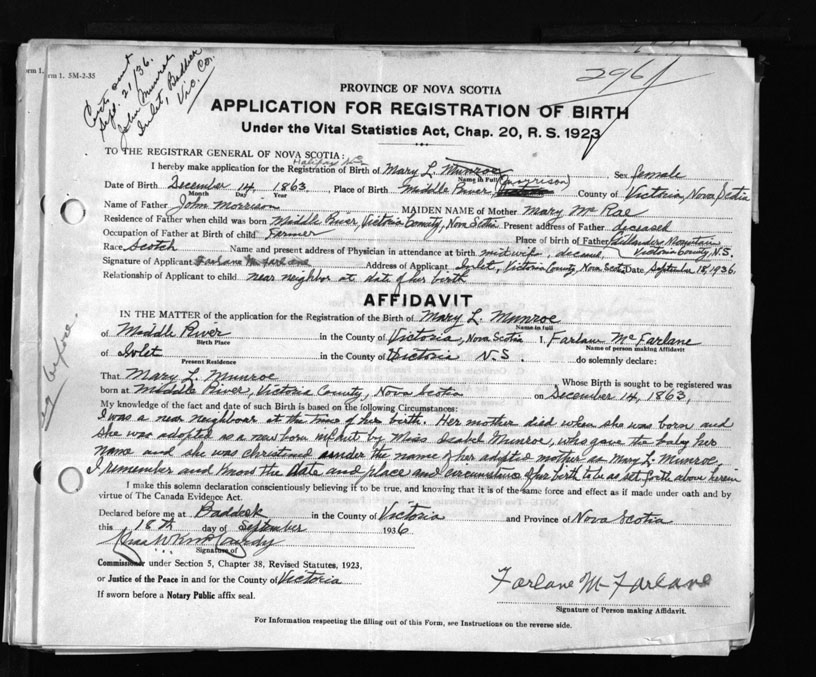 rm 1. 5M-2-35
Sept. 21/36.
John Munroe
Inlet, Baddeck
Vic. Co.
2961
PROVINCE OF NOVA SCOTIA
APPLICATION FOR REGISTRATION OF BIRTH
Under the Vital Statistics Act, Chap. 20, R. S. 1923
TO THE REGISTRAR GENERAL OF NOVA SCOTIA:
Halifax N.S.
I hereby make application for the Registration of Birth of Mary L. Munroe Sex female
Name in Full (Morrison)
Date of Birth December 14, 1863, Place of Birth Middle River, County of Victoria, Nova Scotia
Month Day Year
Name of Father John Morrison MAIDEN NAME of Mother Mary McRae
Residence of Father when child was born Middle River, Victoria County, Nova Scotia Present address of Father deceased
Occupation of Father at Birth of child Farmer Place of birth of Father Gillanders Mountain
Victoria County, N.S.
Race Scotch Name and present address of Physician in attendance at birth midwife, deceased,
Signature of Applicant Farlane McFarlane Address of Applicant Inlet, Victoria County, Nova Scotia Date September 18, 1936.
Relationship of Applicant to child near neighbor at date of her birth
AFFIDAVIT
IN THE MATTER of the application for the Registration of the Birth of Mary L. Munroe
Name in full
of Middle River in the County of Victoria, Nova Scotia I, Farlane McFarlane
Birth Place Name of person making Affidavit
of Inlet in the County of Victoria N.S. do solemnly declare:
Present Residence
That Mary L. Munroe Whose Birth is sought to be registered was
born at Middle River, Victoria County, Nova Scotia on December 14, 1863,
My knowledge of the fact and date of such Birth is based on the following Circumstances:
I was a near neighbour at the time of her birth. Her mother died when she was born and
she was adopted as a new born infant by Miss Isabel Munroe, who gave the baby her
name and she was christened under the name of her adopted mother as Mary L. Munroe,
I remember and know the date and place and circumstance of her birth to be as set forth above herein
I make this solemn declaration conscientiously believing it to be true, and knowing that it is of the same force and effect as if made under oath and by
virtue of The Canada Evidence Act.
Declared before me at Baddeck in the County of Victoria and Province of Nova Scotia
this 18th day of September 1936
Signature of
Commissioner under Section 5, Chapter 38, Revised Statutes, 1923,
or Justice of the Peace in and for the County of Victoria
If sworn before a Notary Public affix seal.
Farlane McFarlane
Signature of Person making Affidavit.
For Information respecting the filling out of this Form, see Instructions on the reverse side.